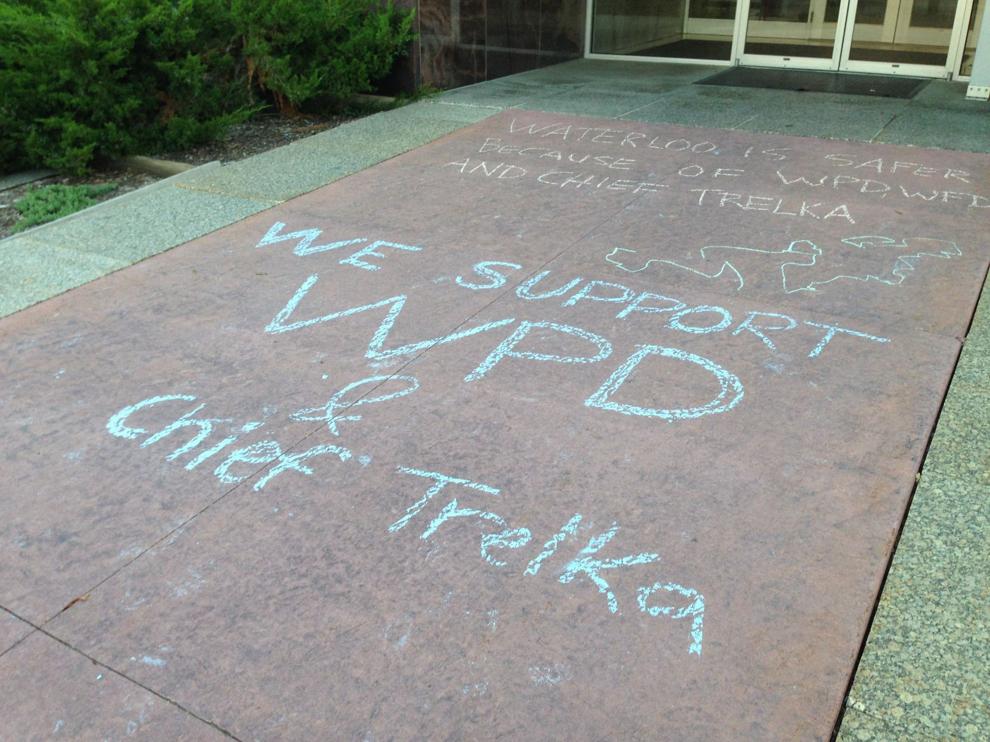 WATERLOO IS SAFER
BECAUSE OF WPD, WFD
AND CHIEF TRELKA
WE SUPPORT
WPD
&
Chief Trelka